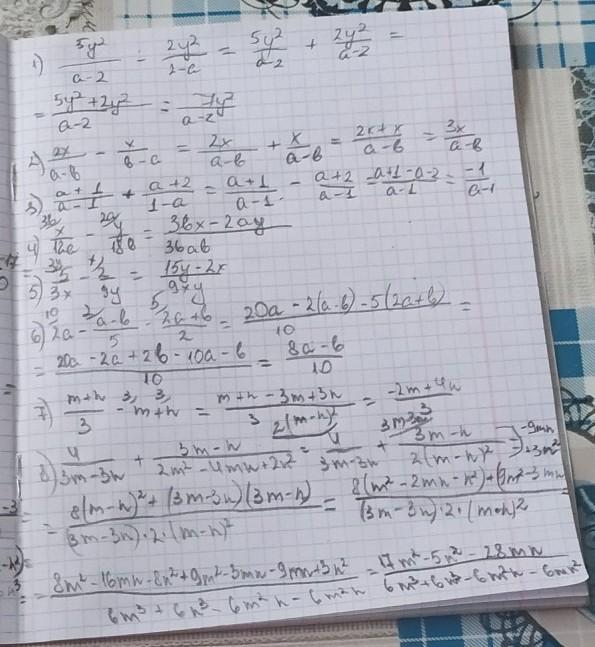 1) 5y²/(a-2) - 2y²/(2-a) = 5y²/(a-2) + 2y²/(a-2) =
= (5y²+2y²)/(a-2) = 7y²/(a-2)
2) 2x/(a-b) - x/(b-a) = 2x/(a-b) + x/(a-b) = (2x+x)/(a-b) = 3x/(a-b)
3) (a+1)/(a-1) + (a+2)/(1-a) = (a+1)/(a-1) - (a+2)/(a-1) = (a+1-a-2)/(a-1) = -1/(a-1)
4) x/12a - y/18b = (3bx-2ay)/36ab
5) 5/3x - 2/9y = (15y-2x)/9xy
6) 2a - (a-b)/5 - (2a+b)/2 = (20a-2(a-b)-5(2a+b))/10 =
= (20a-2a+2b-10a-b)/10 = (8a-b)/10
7) (m+n)/3 - m+n = (m+n-3m+3n)/3 = (-2m+4n)/3
8) 4/(3m-3n) + (3m-n)/(2m²-4mn+2n²) = 4/(3m-3n) + (3m-n)/(2(m-n)²) =
= (8(m-n)²+(3m-3n)(3m-n))/((3m-3n)·2·(m-n)²) = (8(m²-2mn-n²)+(9m²-3mn -9mn +3n²)/((3m-3n)·2·(m-n)²) =
= (8m²-16mn-8n²+9m²-3mn-9mn+3n²)/(6m³+6n³-6m²n-6m²n) = (17m²-5n²-28mn)/(6m³+6n³-6m²n-6mn²)